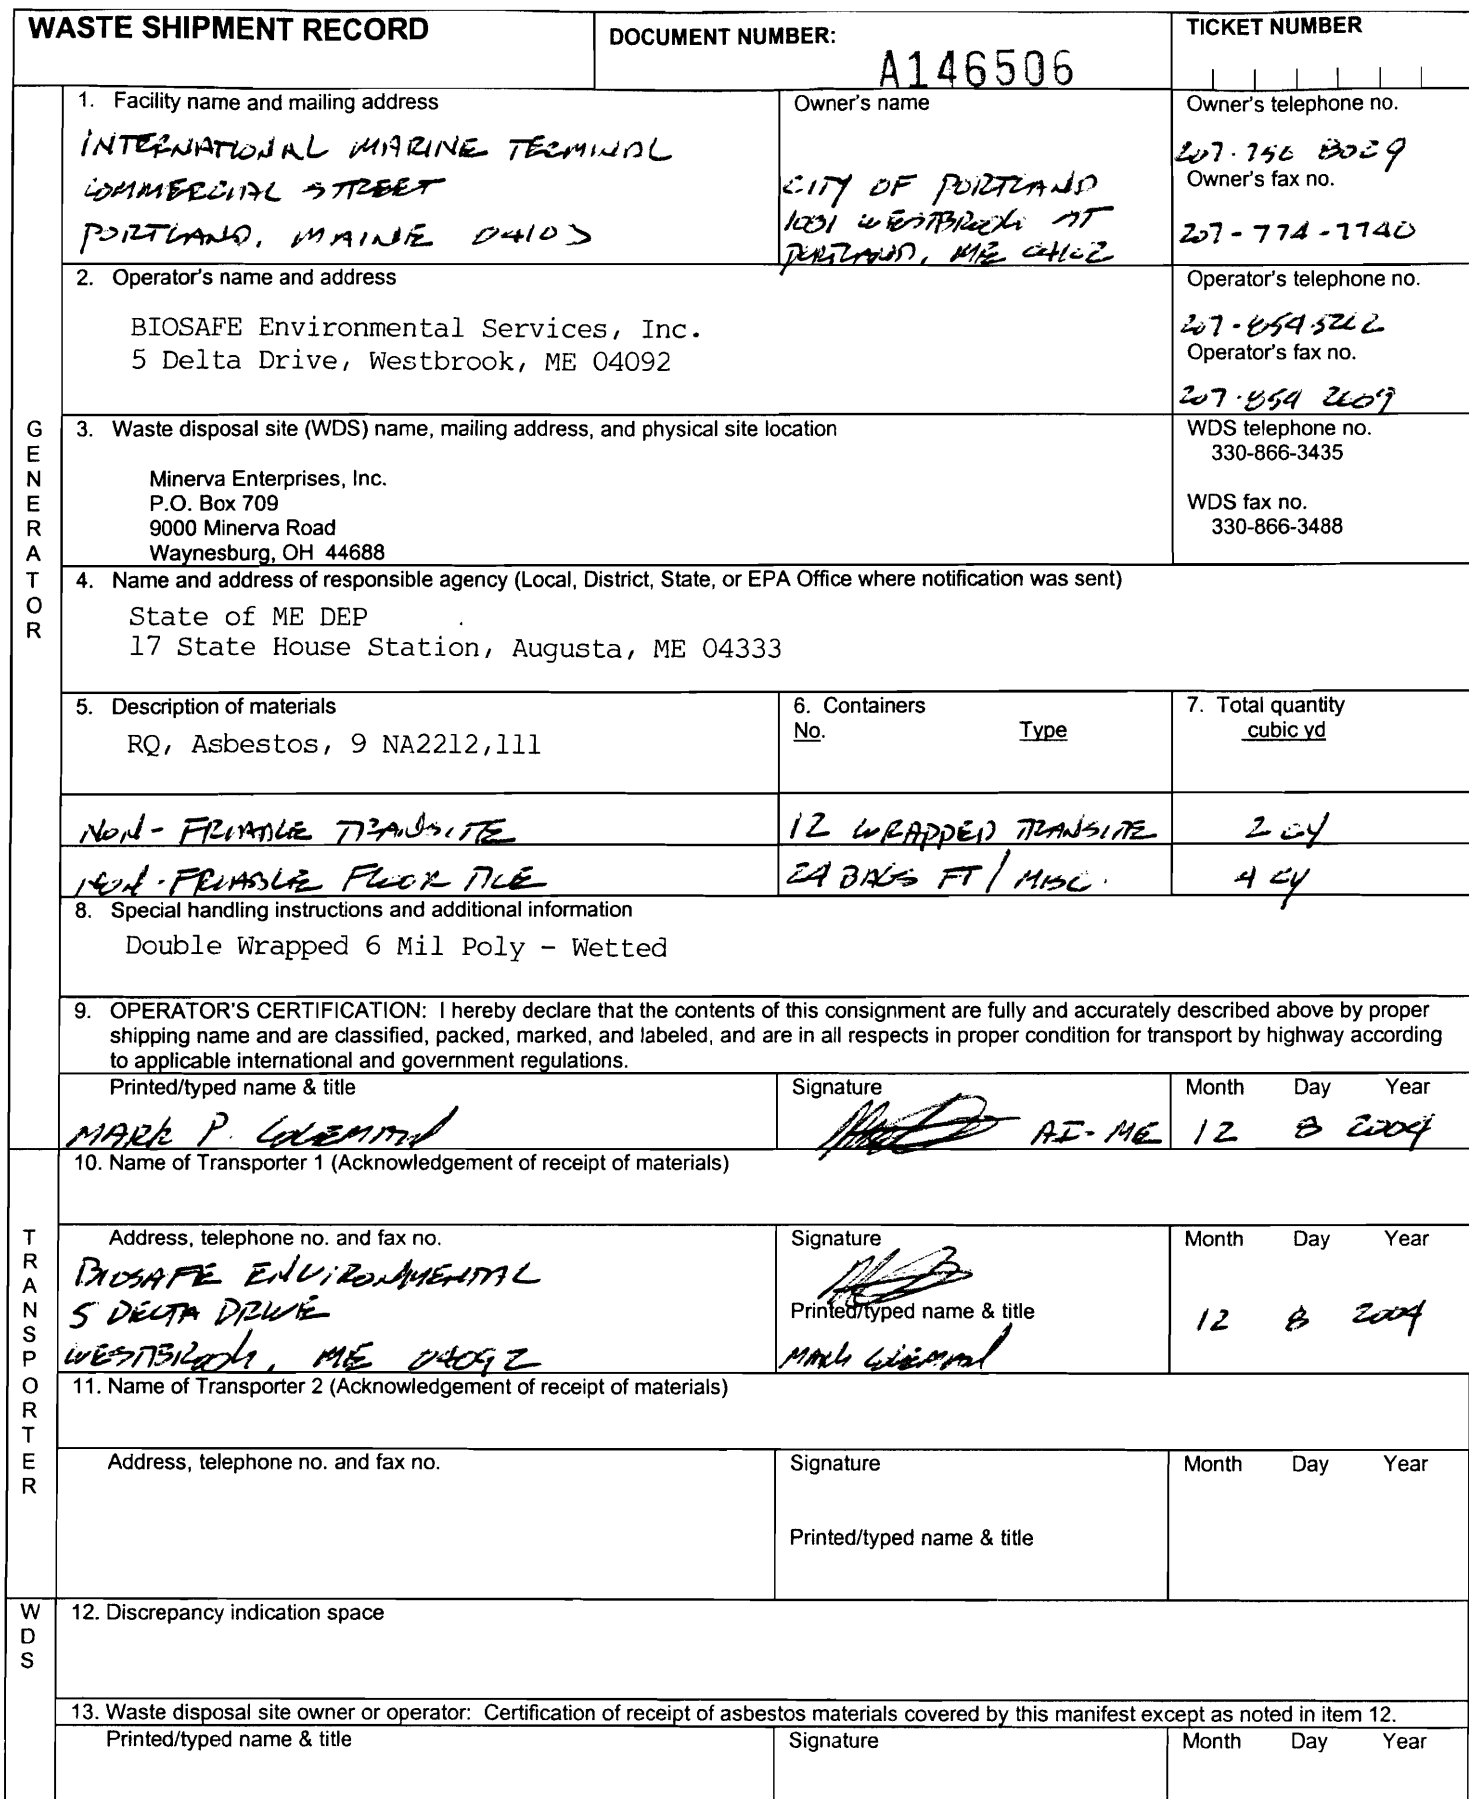 WASTE SHIPMENT RECORD
DOCUMENT NUMBER:
A146506
TICKET NUMBER
GENERATOR
1. Facility name and mailing address
INTERNATIONAL MARINE TERMINAL
COMMERCIAL STREET
PORTLAND, MAINE 04103
Owner's name
CITY OF PORTLAND
1001 WESTBROOK ST
PORTLAND, ME 04102
Owner's telephone no.
207-756 8029
Owner's fax no.
207-774-7740
2. Operator's name and address
BIOSAFE Environmental Services, Inc.
5 Delta Drive, Westbrook, ME 04092
Operator's telephone no.
207-854-5262
Operator's fax no.
207-854 2609
3. Waste disposal site (WDS) name, mailing address, and physical site location
Minerva Enterprises, Inc.
P.O. Box 709
9000 Minerva Road
Waynesburg, OH 44688
WDS telephone no.
330-866-3435
WDS fax no.
330-866-3488
4. Name and address of responsible agency (Local, District, State, or EPA Office where notification was sent)
State of ME DEP
17 State House Station, Augusta, ME 04333
5. Description of materials
RQ, Asbestos, 9 NA2212,lll
6. Containers
No. Type
7. Total quantity
cubic yd
NON-FRIABLE TRANSITE 12 WRAPPED TRANSITE 2 CY
NON-FRIABLE FLOOR TILE 24 BAGS FT / MISC. 4 CY
8. Special handling instructions and additional information
Double Wrapped 6 Mil Poly - Wetted
9. OPERATOR'S CERTIFICATION: I hereby declare that the contents of this consignment are fully and accurately described above by proper
shipping name and are classified, packed, marked, and labeled, and are in all respects in proper condition for transport by highway according
to applicable international and government regulations.
Printed/typed name & title Signature Month Day Year
MARK P. COLEMAN AI-ME 12 8 2004
TRANSPORTER
10. Name of Transporter 1 (Acknowledgement of receipt of materials)
Address, telephone no. and fax no.
BIOSAFE ENVIRONMENTAL
5 DELTA DRIVE
WESTBROOK, ME 04092
Signature
Printed/typed name & title
MARK COLEMAN
Month Day Year
12 8 2004
11. Name of Transporter 2 (Acknowledgement of receipt of materials)
Address, telephone no. and fax no.
Signature
Month Day Year
Printed/typed name & title
WDS
12. Discrepancy indication space
13. Waste disposal site owner or operator: Certification of receipt of asbestos materials covered by this manifest except as noted in item 12.
Printed/typed name & title Signature Month Day Year